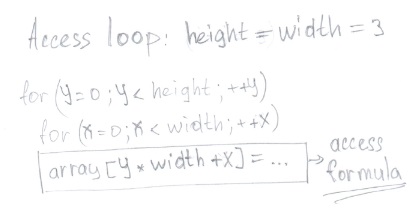 Access loop: height = width = 3
for (y=0; y< height; ++y)
for (x=0; x< width; ++x)
array [y * width +x] = ...
access
formula